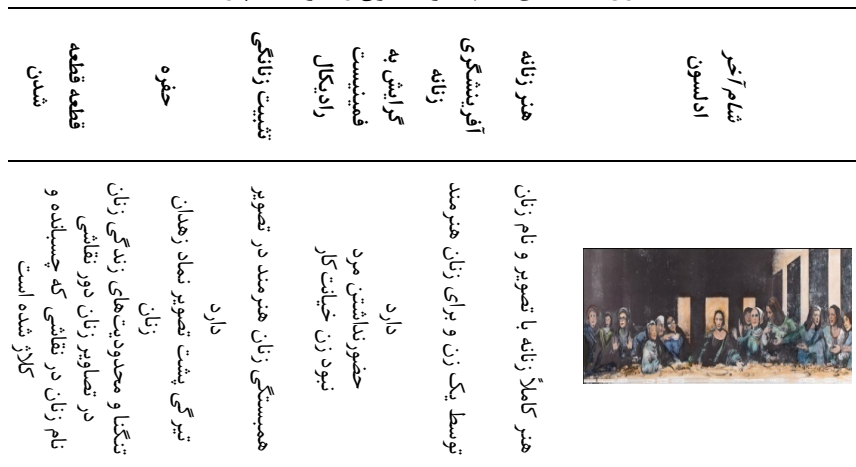 شام آخر
ادلسون
هنر زنانه
آفرینشگری
زنانه
گرایش به
فمینیست
رادیکال
تثبیت زنانگی
حفره
قطعه قطعه
شدن
هنر کاملاً زنانه با تصویر و نام زنان
توسط یک زن و برای زنان هنرمند
دارد
حضورنداشتن مرد
نبود زن خیانت‌کار
همبستگی زنان هنرمند در تصویر
دارد
تیرگی پشت تصویر نماد زهدان
زنان
تنگنا و محدودیت‌های زندگی زنان
در تصاویر زنان دور نقاشی
نام زنان در نقاشی که چسبانده و
کلاژ شده است